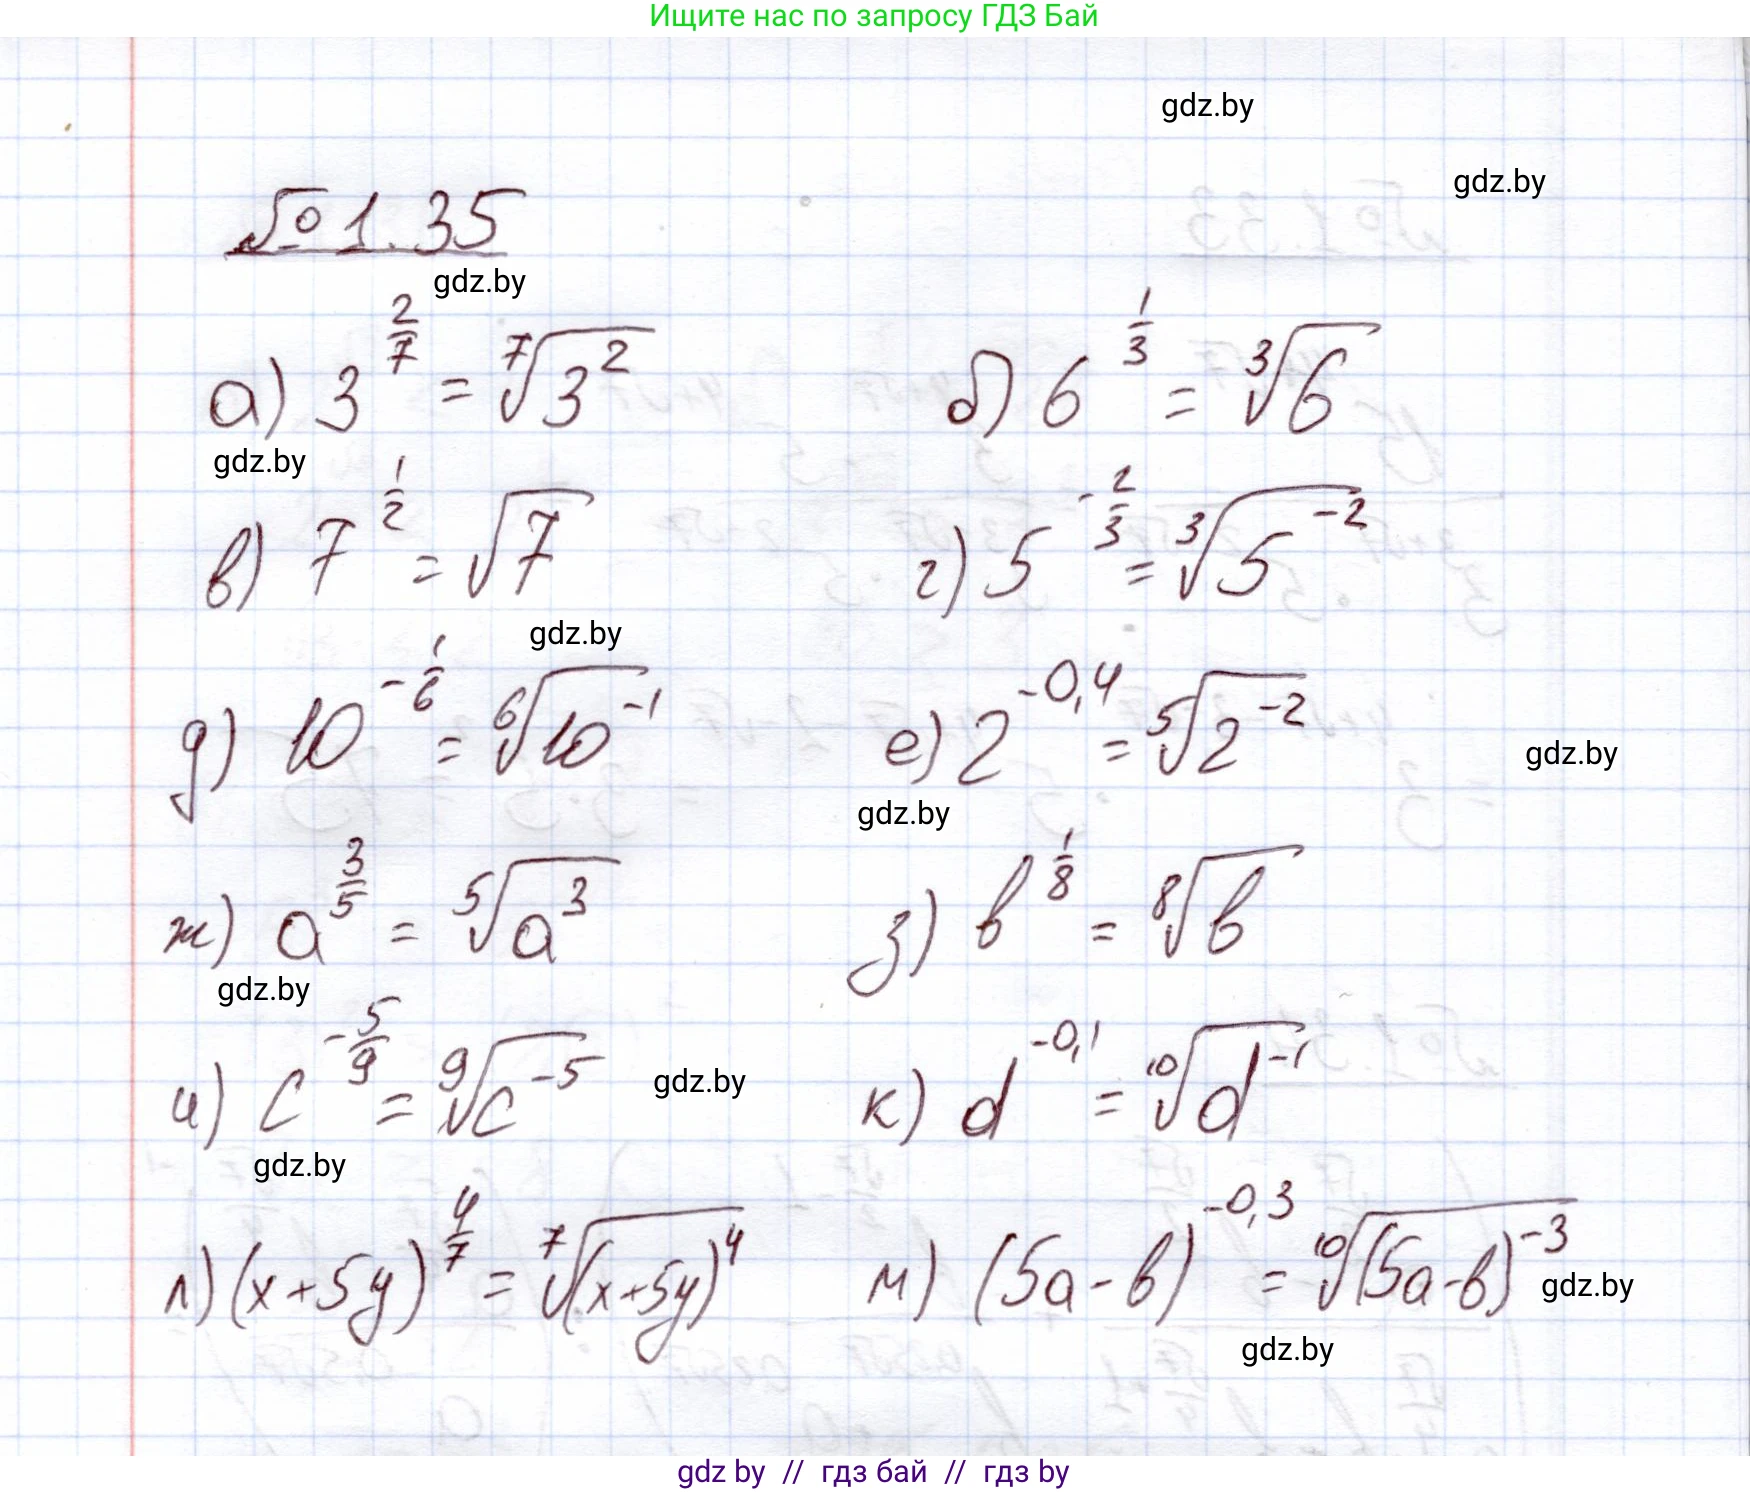 Ищите нас по запросу ГДЗ Бай
gdz.by
gdz.by
№ 1.35
gdz.by
а) 3^(2/7) = ⁷√(3²)
б) 6^(1/3) = ³√6
gdz.by
в) 7^(1/2) = √7
г) 5^(-2/3) = ³√(5^(-2))
gdz.by
д) 10^(-1/6) = ⁶√(10^(-1))
е) 2^(-0,4) = ⁵√(2^(-2))
gdz.by
gdz.by
ж) a^(3/5) = ⁵√(a³)
з) b^(1/8) = ⁸√b
gdz.by
и) c^(-5/9) = ⁹√(c^(-5))
gdz.by
к) d^(-0,1) = ¹⁰√(d^(-1))
gdz.by
л) (x+5y)^(4/7) = ⁷√((x+5y)⁴)
м) (5a-b)^(-0,3) = ¹⁰√((5a-b)^(-3))
gdz.by
gdz.by
gdz by // гдз бай // гдз by